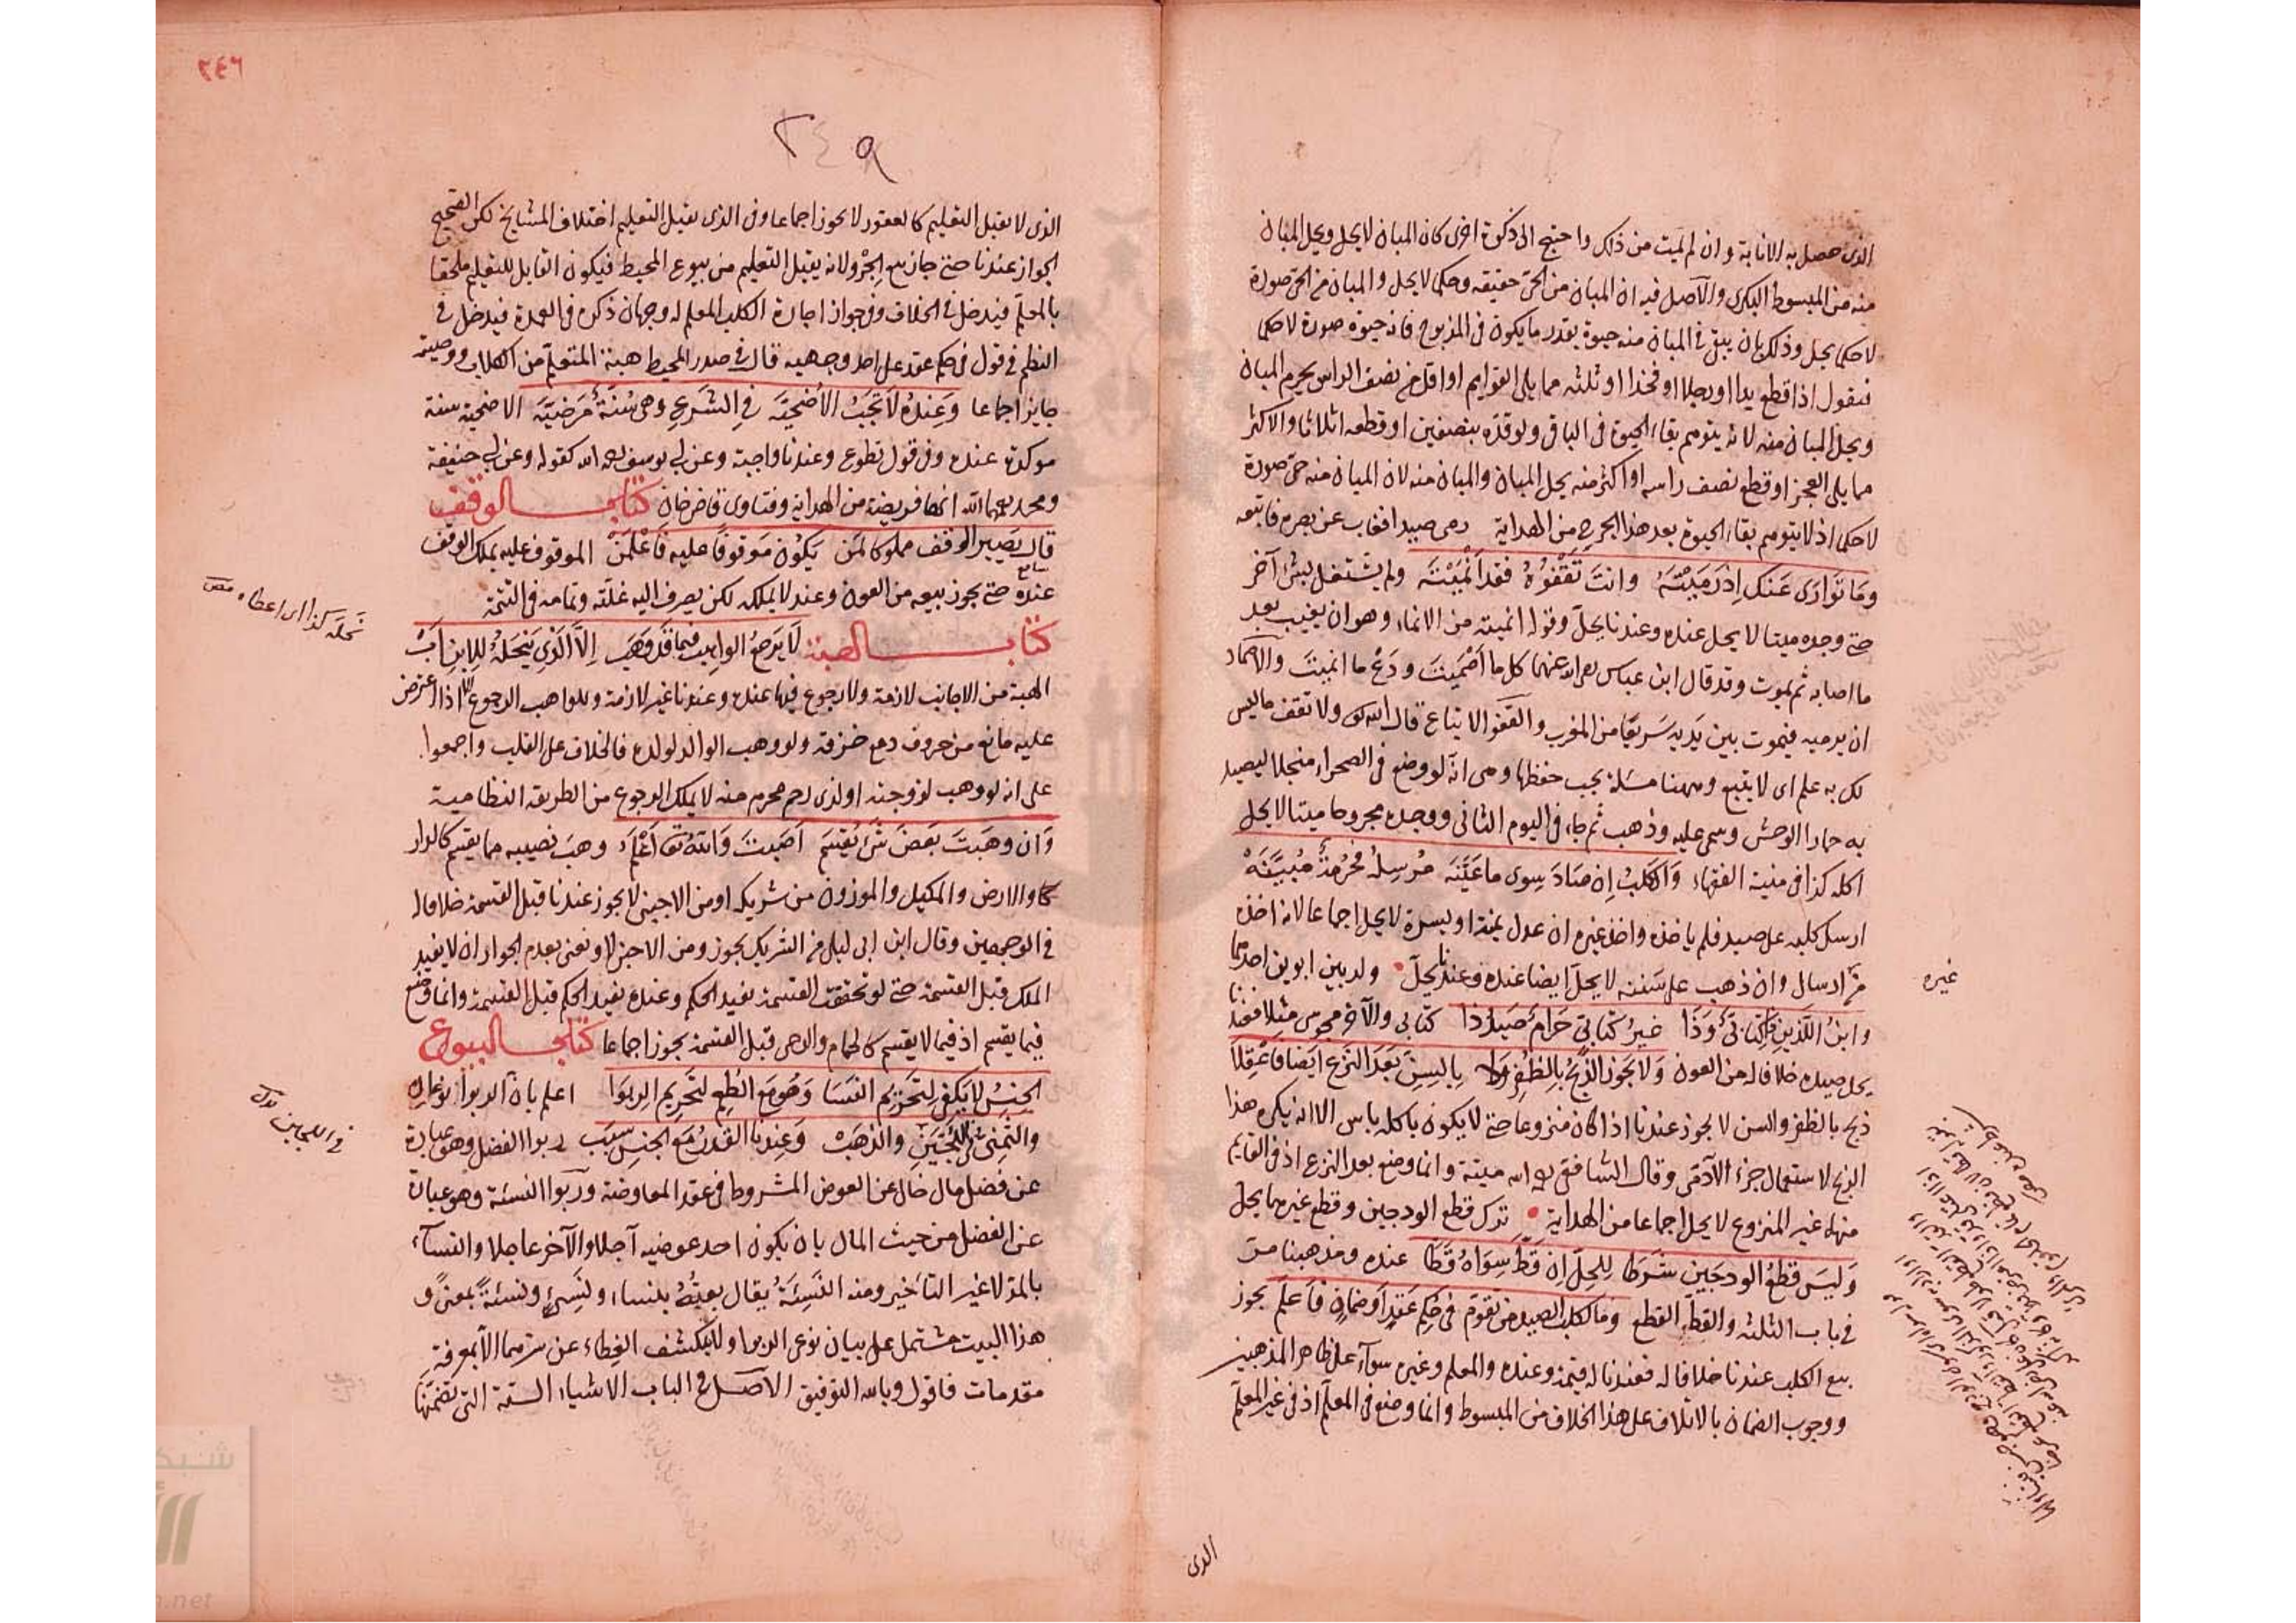 الذى حصل به الابانة وان لم يمت من ذلك واحتيج الى ذكوة اخرى كان المبان لا يحل ويحل المبان
منه من المبسوط البكرى والاصل فيه ان المبان من الحى حقيقة وحكما لا يحل والمبان من الحى صورة
لا حكما يحل وذلك بان يبقى فى المبان منه حيوة بقدر ما يكون فى المذبوح فانه حيوة صورة لا حكما
فنقول اذا قطع يدا او رجلا او فخذا او ثلثه مما يلى القوايم او اقل من نصف الراس يحرم المبان
ويحل المبان منه لانه يتوهم بقاء الحيوة فى الباقى ولو قده بنصفين او قطعه اثلاثا والاكثر
مما يلى العجز او قطع نصف راسه او اكثر منه يحل المبان والمبان منه لان المبان منه حى صورة
لا حكما اذ لا يتوهم بقاء الحيوة بعد هذا الجرح من الهداية رمى صيدا فغاب عن بصره فاتبعه
وَمَا تَوَارَى عَنكَ اِذْ رَمَيْتَهُ وانتَ تَقْفُوهُ فقد اَنْمَيْتَه ولم يشتغل بشئ آخر
حتى وجده ميتا لا يحل عنده وعندنا يحل وقوله انميته من الانماء وهو ان يغيب بعد
ما اصابه ثم يموت وقد قال ابن عباس رضى الله عنهما كل ما اَصْمَيتَ ودَعْ ما انميتَ والاصماء
ان يرميه فيموت بين يَدَيه سَريعًا من المغرب والقفو الاتباع قال الله تعالى ولا تقف ما ليس
لك به علم اى لا يتبع وههنا مسئلة يجب حفظها وهى انه لو وضع فى الصحراء منجلا ليصيد
به حمارا الوحش وسمى عليه وذهب ثم جاء فى اليوم الثانى ووجده مجروحا ميتا لا يحل
اكله كذا فى منية الفقهاء وَالكَلبُ اِن صَادَ سِوى ما عَيَّنَه مُرسِلُه مُحَرَّمَةٌ مُبَيَّنَهْ
ارسل كلبه على صيد فلم ياخذه واخذ غيره ان عدل يمنة او يسرة لا يحل اجماعا لانه اخذه
من غير ارسال وان ذهب على سننه لا يحل ايضا عنده وعندنا يحل ولد بين ابوين احدهما
وابنُ اللَّذَينِ ذا كِتابِىٌّ وَذَا غيرُ كتابىّ حَرامٌ صَيدُ ذا كتابى والآخر مجوسى مثلا فعندنا
يحل صيده خلافا له من العون وَلا يَجوز الذَّبحُ بِالظُفرِ ولا بِالسِنِّ بَعدَ النَزعِ ايضا فاعقِلاَ
ذبح بالظفر والسن لا يجوز عندنا اذا كان منزوعا حتى لا يكون باكله باس الا انه يكره هذا
الذبح لاستعمال جزء الآدمى وقال الشافعى رحمه الله ميتة وانما وضع بعد النزع اذ فى القايم
منهما غير المنزوع لا يحل اجماعا من الهداية ترك قطع الودجين وقطع غيرهما يحل
وَليسَ قطعُ الودجَينِ شَرطَا لِلحِلّ اِن قَطَّ سِوَاهُ قَطَّا عنده ومذهبنا مرّ
فى باب الثلثه والقطّ القطع وما لكلب الصيد من تقوّم فى حُكمِ عَقدٍ اَو ضمانٍ فاعلم يجوز
بيع الكلب عندنا خلافا له فعندنا له قيمة وعنده والمعلم وغيره سوآء على ظاهر المذهبين
ووجوب الضمان بالاتلاف على هذا الخلاف من المبسوط وانما وضع فى المعلم اذ فى غير المعلم
غيره
الذى
٢٤٦
٢٤٩
الذى لا يقبل التعليم كالعقور لا يجوز اجماعا وفى الذى يقبل التعليم اختلاف المشايخ لكن الصحيح
الجواز عندنا حتى جاز بيع الجرو لانه يقبل التعليم من بيوع المحيط فيكون القابل للتعليم ملحقا
بالمعلم فيدخل فى الخلاف وفى جواز اجارة الكلب المعلم له وجهان ذكره فى العمدة فيدخل فى
النظم فى قول فى حكم عقد على احد وجهيه قال فى صدر المحيط هبة المتعلم من الكلاب ووصيته
جايز اجماعا وَعِندَهُ لا تَجبُ الأُضحِيّه فى الشرعِ وهى سُنةٌ مَرضيّه الاضحية سنة
موكدة عنده وفى قول تطوع وعندنا واجبة وعن ابى يوسف رحمه الله كقوله وعن ابى حنيفة
ومحمد رحمهما الله انها فريضة من الهداية وفتاوى قاضيخان كتاب الوقف
قال يَصيرُ الوقف مملوكا لمَن يَكُون مَوقوفًا عليه فاعلمَنْ الموقوف عليه يملك الوقف
عنده حتى يجوز بيعه من العون وعندنا لا يملكه لكن يصرف اليه غلته وتمامه فى التتمة
كتاب الهبة لا يَرجعُ الواهِب فيما قَد وَهَب اِلاَّ الذى يَنحَلُهُ لِلاِبنِ اَبْ
الهبة من الاجانب لازمة ولا رجوع فيها عنده وعندنا غير لازمة وللواهب الرجوع الا اذا اعترض
عليه مانع من حروف دمع خزقه ولو وهب الوالد لولده فالخلاف على القلب واجمعوا
على انه لو وهب لزوجته او لذى رحم محرم منه لا يملك الرجوع من الطريقة النظامية
وَان وهَبتَ بَعضَ شَىءٍ يُقسَم اَصَبتَ وَاللهُ تعالى اَعْلَم وهب نصيبه مما يقسم كالدار
والارض والمكيل والموزون من شريكه او من الاجنبى لا يجوز عندنا قبل القسمة خلافا له
فى الوجهين وقال ابن ابى ليلى من الشريك يجوز ومن الاجنبى لا ونعنى بعدم الجواز ان لا يفيد
الملك قبل القسمة حتى لو تحققت القسمة يفيد الحكم وعنده يفيد الحكم قبل القسمة وانما وضع
فيما يقسم اذ فيما لا يقسم كالحمام والرحى قبل القسمة يجوز اجماعا كتاب البيوع
الجِنسُ لا يَكفى لِتَحريمِ النَسَا وَهُو مَع الطُعمِ لتَحريمِ الرِبَوا اعلم بان الربوا نوعان
والثَمنىِّ كاللُّجَينِ والذهَبْ وَعِندنا القَدرُ مَع الجنسِ سبَب ربوا الفضل وهو عبارة
عن فضل مال خال عن العوض المشروط فى عقد المعاوضة وربوا النسئة وهو عبارة
عن الفضل من حيث المال بان يكون احد عوضيه آجلا والآخر عاجلا والنسآء
بالمد لا غير التاخير ومنه النَسِئَةُ يقال بعتُهُ بنساء ونسِىءٍ ونسئةٍ بمعنًى و
هذا البيت مشتمل على بيان نوعى الربوا ولا ينكشف الغطاء عن سرهما الا بمعرفة
مقدمات فاقول وبالله التوفيق الاصل فى الباب الاشياء الستة التى تضمنها
نحله كذا اى اعطاه
فى اللجين بدل